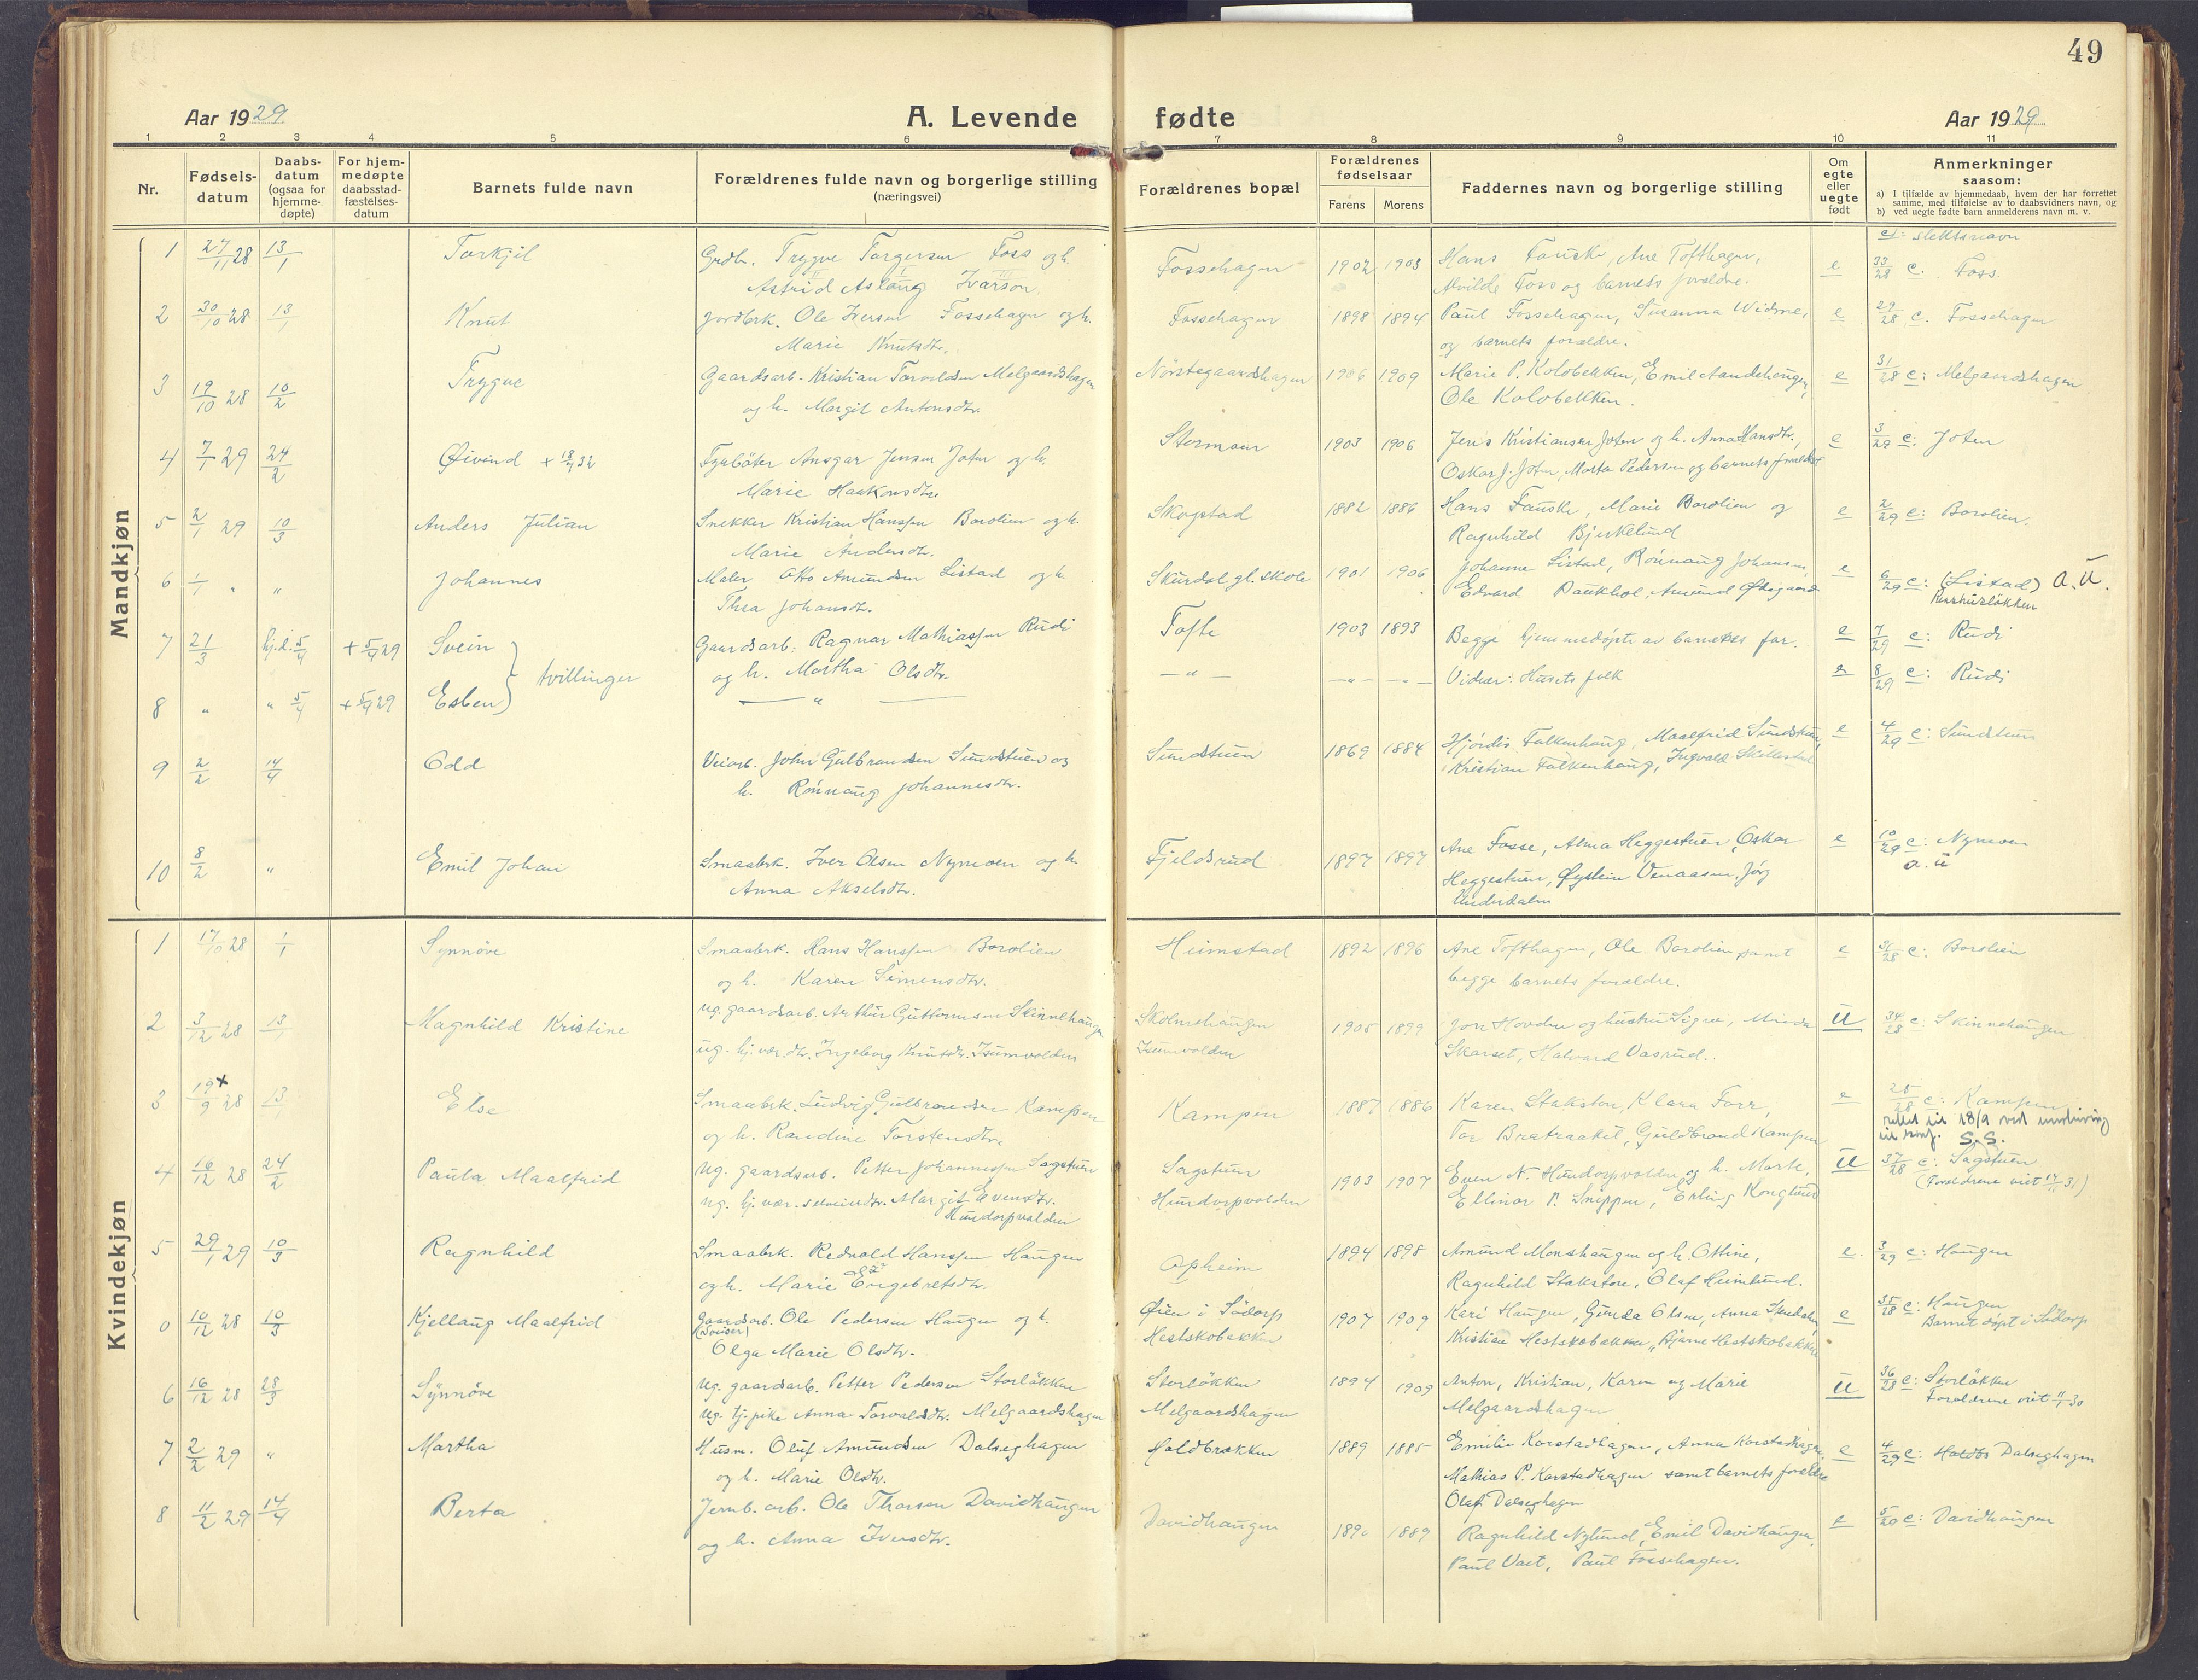 49
Aar 1929
A. Levende fødte
Aar 1929
1 2 3 4 5 6 7 8 9 10 11
Nr.
Fødsels-
datum
Daabs-
datum
(ogsaa for
hjemme-
døpte)
For hjem-
medøpte
daabsstad-
fæstelses-
datum
Barnets fulde navn
Forældrenes fulde navn og borgerlige stilling
(næringsvei)
Forældrenes bopæl
Forældrenes
fødselsaar
Farens Morens
Faddernes navn og borgerlige stilling
Om
egte
eller
uegte
født
Anmerkninger
saasom:
a) I tilfælde av hjemmedaab, hvem der har forrettet
samme, med tilføielse av to daabsvidners navn, og
b) ved uegte fødte barn anmelderens navn m. v.
Mandkjøn
c): slektsnavn
1 27/11 28 13/1 Torkjil Grdbr. Trygve Torgersen Foss og h. Fossehagen 1902 1903 Hans Fauske, Ane Tofthagen, e 33/28 c. Foss.
Astrid Aslaug Ivarson Alvilde Foss og barnets forældre.
2 30/10 28 13/1 Knut Jordbrk. Ole Iversen Fossehagen og h. Fossehagen 1898 1894 Paul Fossehagen, Susanna Widme, e 29/28 c. Fossehagen
Marie Knutsdtr. og barnets forældre.
3 19/10 28 10/2 Trygve Gaardsarb. Kristian Torvaldsen Melgaardshagen Nørstegaardshagen 1906 1909 Marie P. Kolobekken, Emil Aandehaugen, e 31/28 c: Melgaardshagen
og h. Margit Antonsdtr. Ole Kolobekken.
4 7/1 29 24/2 Øivind + 18/9 32 Fyrbøter Ansgar Jensen Jotun og h. Stormoen 1903 1906 Jens Kristiansen Jotun og h. Anna Hansdtr., e 3/29 c: Jotun
Marie Haakonsdtr. Oskar J. Jotun, Marta Pedersen og barnets forældre
5 2/1 29 10/3 Anders Julian Snekker Kristian Hanssen Borolien og h. Skogstad 1882 1886 Hans Fauske, Marie Borolien og e 2/29 c: Borolien.
Marie Andersdtr. Ragnhild Bjerkelund
6 1/1 " " Johannes Maler Otto Amundsen Listad og h. Skurdal gl. skole 1901 1906 Johanne Listad, Rønnaug Johansen, e 6/29 c: (Listad) a. u.
Thea Johansdtr. Edvard Paukhol, Amund Øksgaard
7 21/3 hj.d. 5/4 + 5/4 29 Svein Gaardsarb: Ragnar Mathiassen Rudi Tofte 1903 1893 Begge hjemmedøpte av barnets far. e 7/29 c: Rudi
tvillinger og h. Martha Olsdtr.
8 " " 5/4 + 5/4 29 Esben — " — — " — — " — — " — Vidner: Husets folk e 8/29 c: Rudi
9 2/2 14/4 Odd Veiarb. John Gulbrandsen Sundstuen og Sundstuen 1869 1884 Hjørdis Falkenhaug, Maalfrid Sundstuen, e 4/29 c: Sundstuen
h. Rønnaug Johannesdtr. Kristian Falkenhaug, Ingvald Skillestad
10 8/2 " Emil Johan Smaabrk. Iver Olsen Nymoen og h. Fjeldsrud 1897 1897 Ane Fosse, Alma Heggestuen, Oskar e 10/29 c: Nymoen
Anna Akselsdtr. Heggestuen, Øystein Venaasen, Jørg a. u
Underdalen
Kvindekjøn
1 17/10 28 1/1 Synnøve Smaabrk. Hans Hanssen Borolien Heimstad 1892 1896 Ane Tofthagen, Ole Borolien samt e 31/28 c: Borolien
og h. Karen Simensdtr. begge barnets forældre.
2 3/12 28 13/1 Magnhild Kristine Ug. gaardsarb. Arthur Guttormsen Skinnehaugen Skolnehaugen 1905 1899 Jon Hovden og hustru Signe, Minda U 34/28 c: Skinnehaugen
ug. hj.vær. dtr. Ingeborg Knutsdtr. Isumvolden Isumvolden Skarset, Halvard Vasrud.
3 19/9 x 28 13/1 Else Smaabrk. Ludvig Gulbrandsen Kampen Kampen 1887 1886 Karen Stakston, Klara Forr, e 25/28 c: Kampen
og h. Randine Torstensdtr. Tor Bratraakil, Guldbrand Kampen rettet til 18/9 ved
S. S.
4 16/12 28 24/2 Paula Maalfrid Ug. gaardsarb. Petter Johannessen Sagstuen Sagstuen 1903 1907 Even N. Hundorpvolden og h. Marte, U 37/28 c: Sagstuen
ug. hj.vær. Margit Evensdtr. Hundorpvolden Hundorpvolden Ellinor P. Snippen, Erling Konglund (Foreldrene viet 17/11 31)
5 29/1 29 10/3 Ragnhild Smaabrk. Redvald Hanssen Haugen Opheim 1894 1898 Amund Monshaugen og h. Ottine, e. 3/29 c: Haugen
og h. Marie Engebretsdtr. Ragnhild Stakston, Olaf Heimlund.
0 10/12 28 10/3 Kjellaug Maalfrid Gaardsarb. Ole Pedersen Haugen og h. Øien i Sødorp 1907 1909 Kari Haugen, Gunda Olsen, Anna e 35/28 c: Haugen
Olga Marie Olsdtr. Hestskobakken Kristian Hestskobakken, Bjarne Hestskobakken Barnet døpt i Sødorp
6 16/12 28 28/3 Synnøve Ug. gaardsarb. Petter Pedersen Storløkken Storløkken 1894 1909 Anton, Kristian, Karen og Marie U 36/28 c: Storløkken
Ug. tj. pike Anna Torvaldsdtr. Melgaardshagen Melgaardshagen Melgaardshagen Foreldrene viet 11/1 30
7 2/2 29 " Martha Husm. Oluf Amundsen Dalseghagen Holdbrækken 1889 1885 Emilie Korstadhagen, Anna Korstadhagen, e 4/29 c: Holdbr Dalseghagen
og h. Marie Olsdtr. Mathias P. Korstadhagen samt barnets forældre
Olaf Dalseghagen
8 11/2 29 14/4 Berta Jernb. arb. Ole Thorsen Davidhaugen Davidhaugen 1889 Ragnhild Nylund, Emil Davidhaugen, e c: Davidhaugen
og h. Anna Iversdtr. Paul Vaet, Paul Fossehagen.